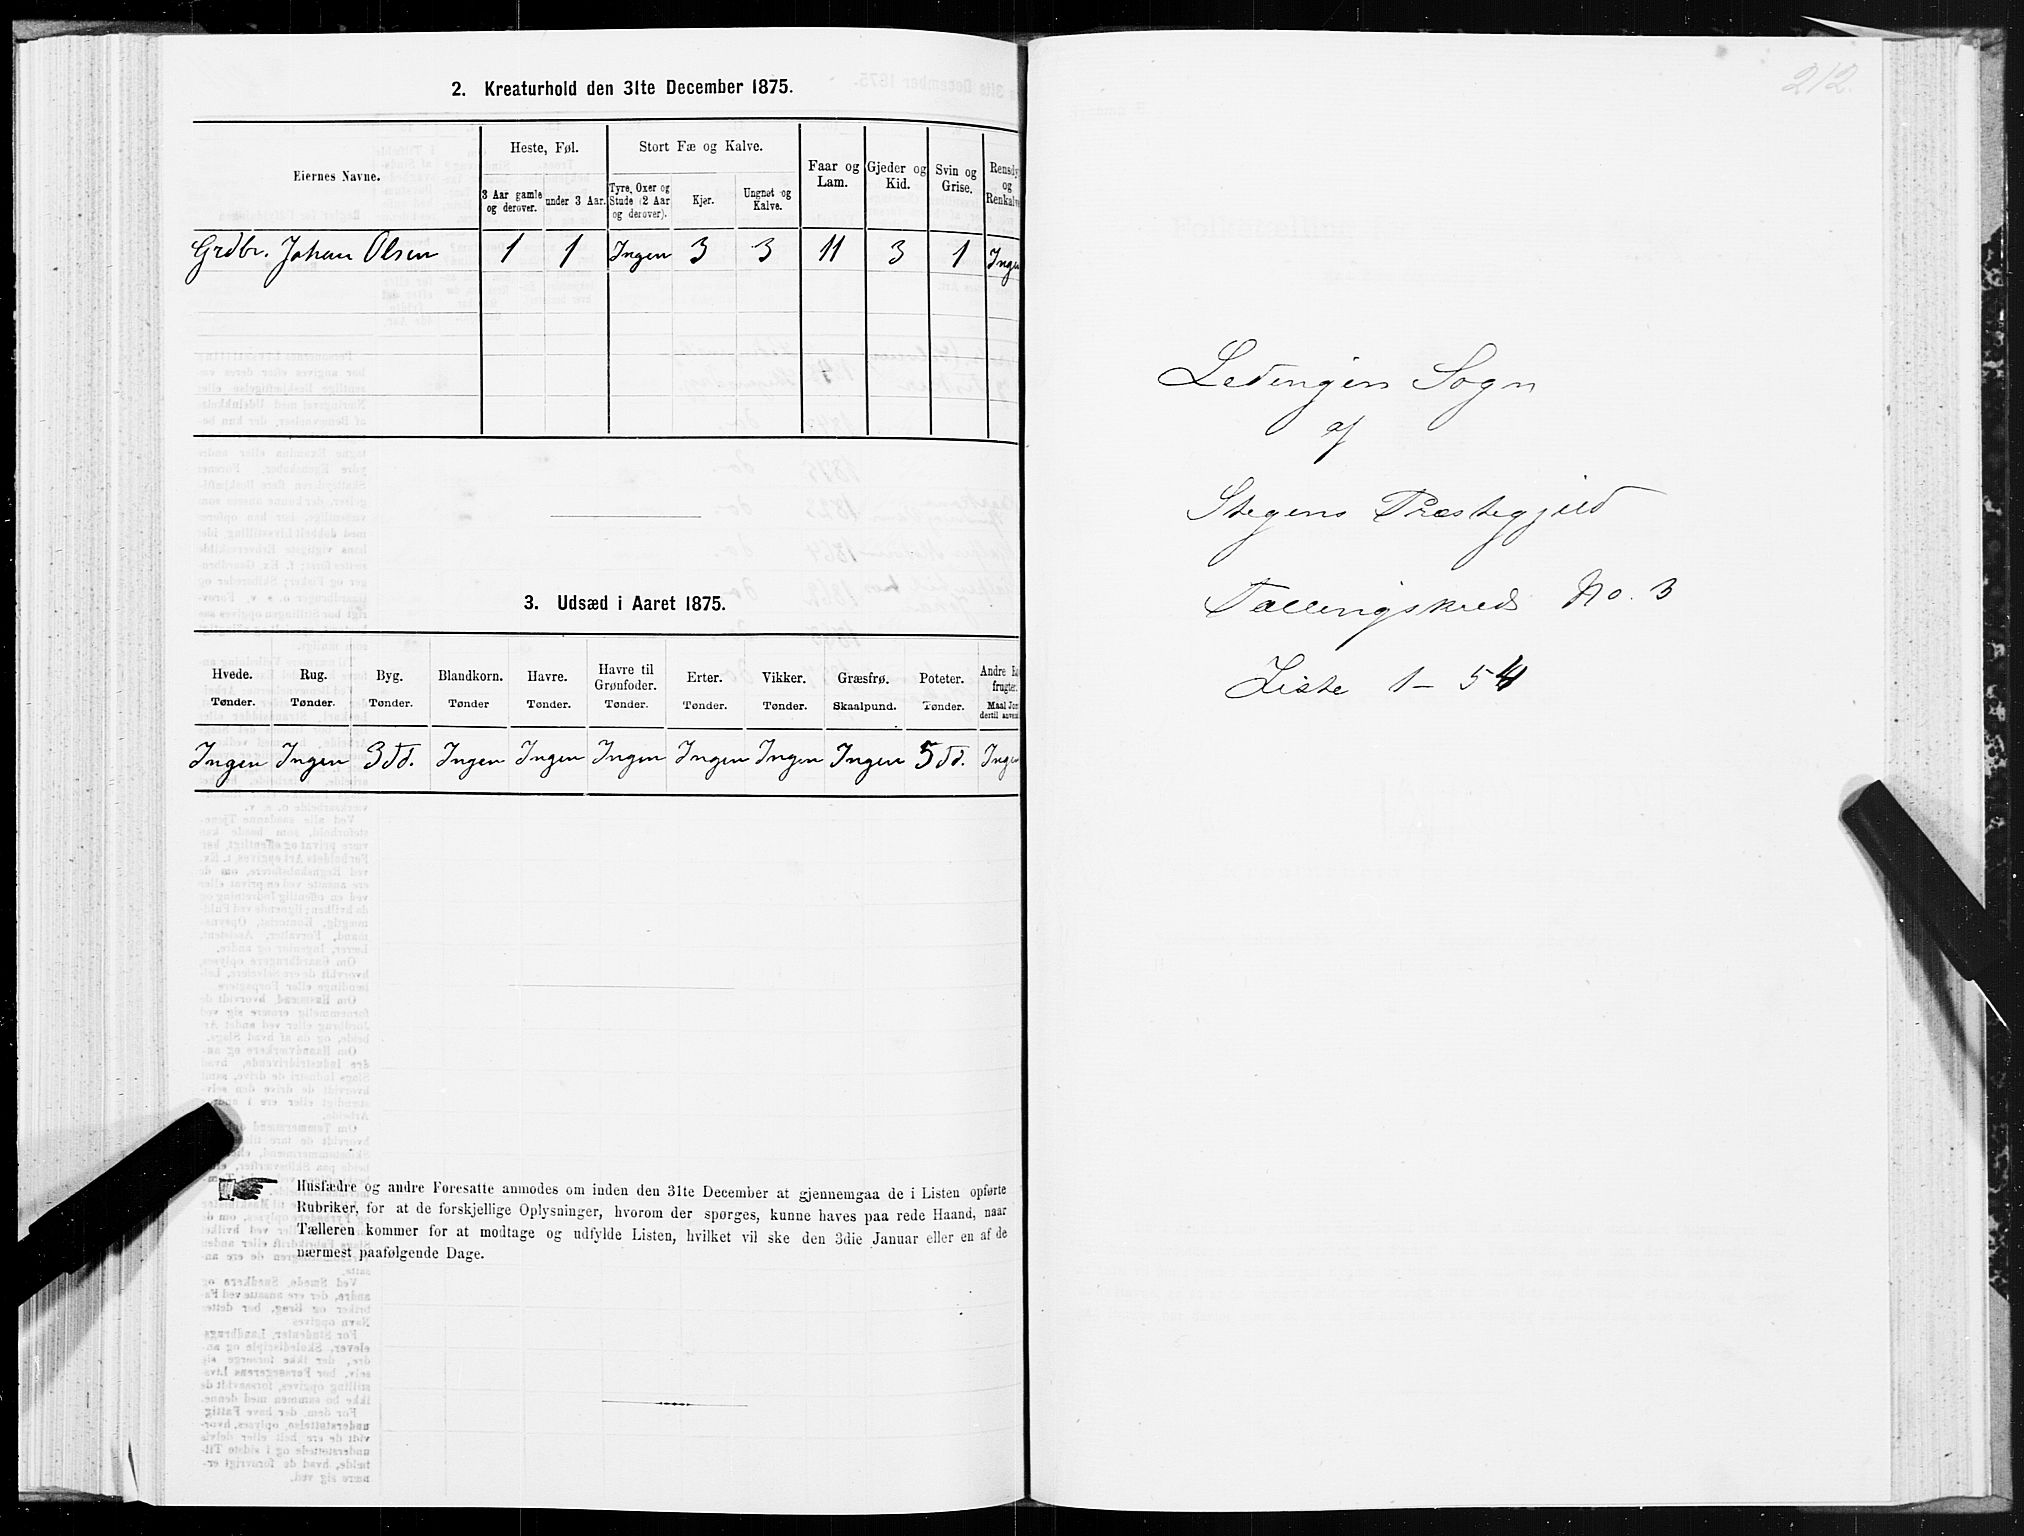 2. Kreaturhold den 31te December 1875.
Eiernes Navne.
Heste, Føl.
Stort Fæ og Kalve.
Faar og Lam.
Gjeder og Kid.
Svin og Grise.
Rensdy og Renkalve
3 Aar gamle og derover.
under 3 Aar.
Tyre, Oxer og Stude (2 Aar og derover).
Kjør.
Ungnøt og Kalve.
Grdbr. Johan Olsen 1 1 Ingen 3 3 11 3 1 Ingen
3. Udsæd i Aaret 1875.
Hvede. Rug. Byg. Blandkorn. Havre. Havre til Grønfoder. Erter. Vikker. Græsfrø. Poteter. Andre
frugter.
Tønder. Tønder. Tønder. Tønder Tønder. Tønder. Tønder. Tønder. Skaalpund. Tønder. Maal Jor
dertil
Ingen Ingen 3 Td. Ingen Ingen Ingen Ingen Ingen Ingen 5 Td. Ingen
Husfædre og andre Foresatte anmodes om inden den 31te December at gjennemgaa de i Listen opførte
Rubriker, for at de forskjellige Oplysninger, hvorom der spørges, kunne haves paa rede Haand, naar
Tælleren kommer for at modtage og udfylde Listen, hvilket vil ske den 3die Januar eller en af de
nærmest paafølgende Dage.
212.
Ledingen Sogn
af
Stegens Præstegjeld
Tællingskreds No. 3
Liste 1 - 54